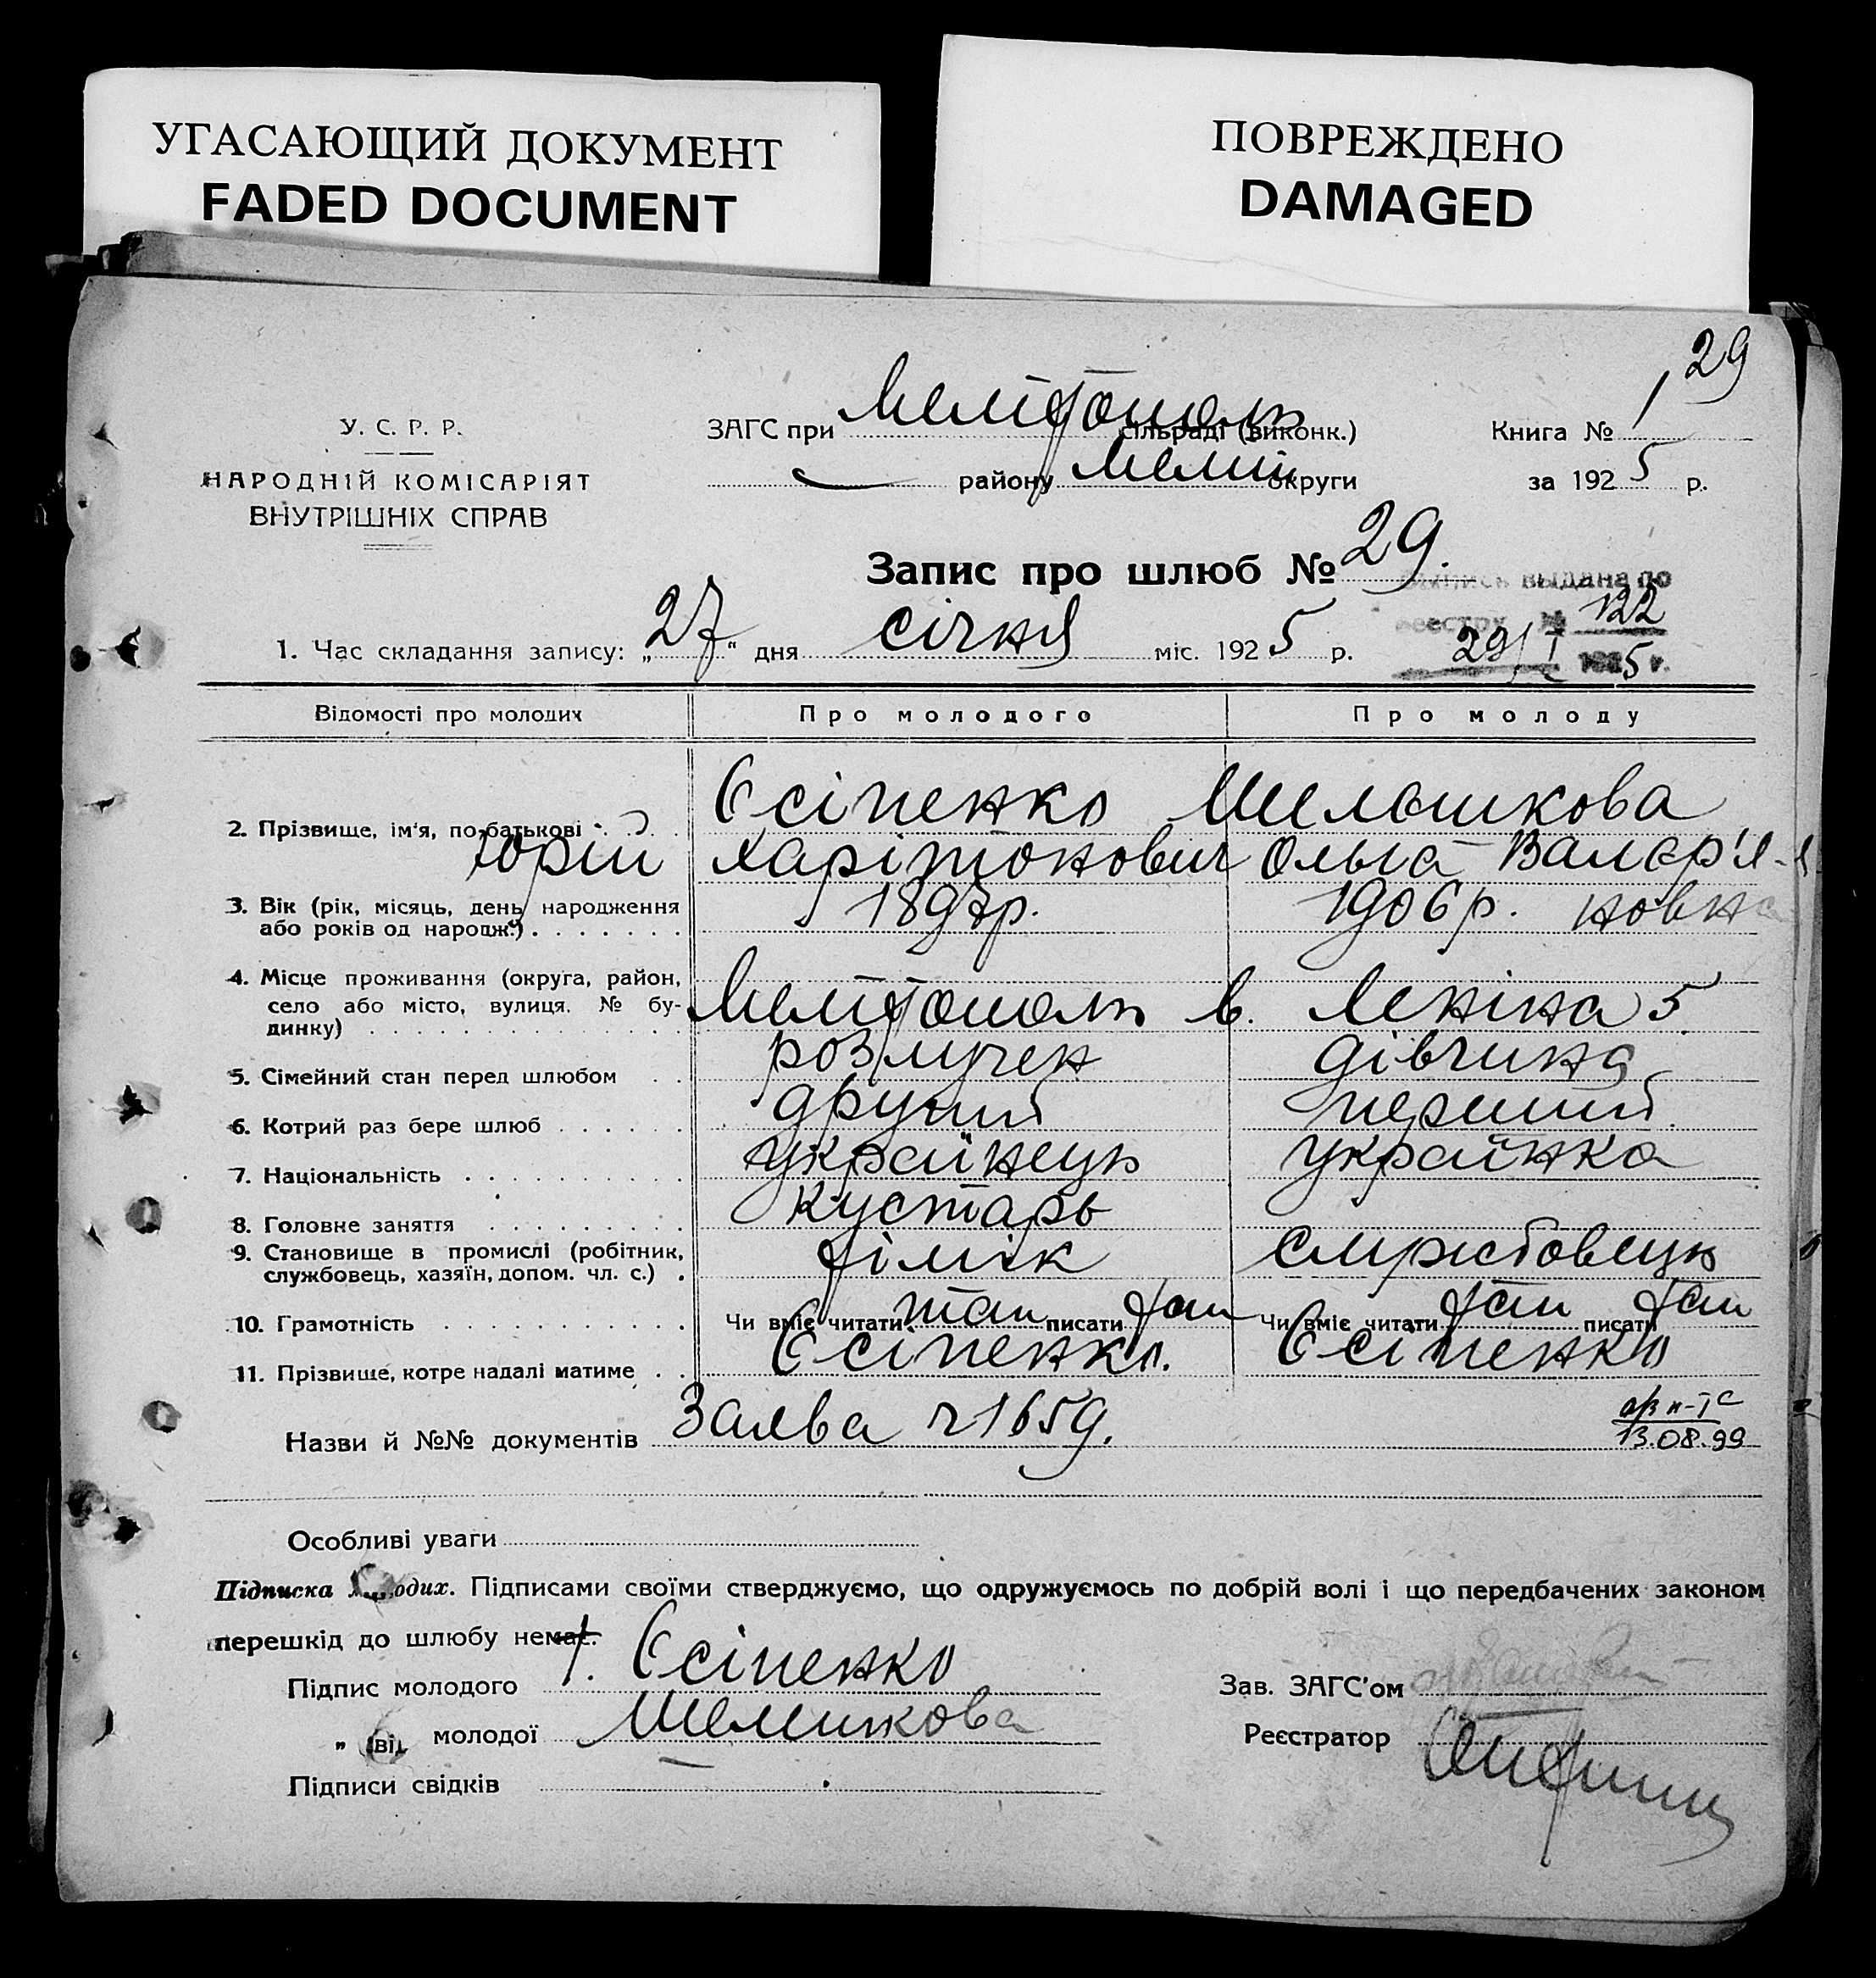 УГАСАЮЩИЙ ДОКУМЕНТ
FADED DOCUMENT
ПОВРЕЖДЕНО
DAMAGED
29
У. С. Р. Р.
НАРОДНІЙ КОМІСАРІЯТ
ВНУТРІШНІХ СПРАВ
ЗАГС при Мелітополь сільраді (виконк.)
району Меліт округи
Книга № 1
за 1925 р.
Запис про шлюб № 29.
выдана по
реестру № 122
29/I 1925 г.
1. Час складання запису: „27“ дня січня міс. 1925 р.
Відомості про молодих Про молодого Про молоду
2. Прізвище, ім'я, по-батькові Єсіпенко
Юрій Харітонович Ольга Валєр'я-
новна
3. Вік (рік, місяць, день народження або років од народж.) 1897р. 1906р.
4. Місце проживання (округа, район, село або місто, вулиця. № будинку) Мелітополь в. Леніна 5
5. Сімейний стан перед шлюбом розлучен дівчина
6. Котрий раз бере шлюб другий перший
7. Національність українець українка
8. Головне заняття кустарь
9. Становище в промислі (робітник, службовець, хазяїн, допом. чл. с.)
10. Грамотність Чи вміє читати так писати так Чи вміє читати так писати так
11. Прізвище, котре надалі матиме Єсіпенко. Єсіпенко
Назви й №№ документів Заява ч 1659.
13.08.99
Особливі уваги
Підписка молодих. Підписами своїми стверджуємо, що одружуємось по добрій волі і що передбачених законом
перешкід до шлюбу немає.
Підпис молодого Єсіпенко
„ молодої
Підписи свідків
Зав. ЗАГС'ом
Реєстратор